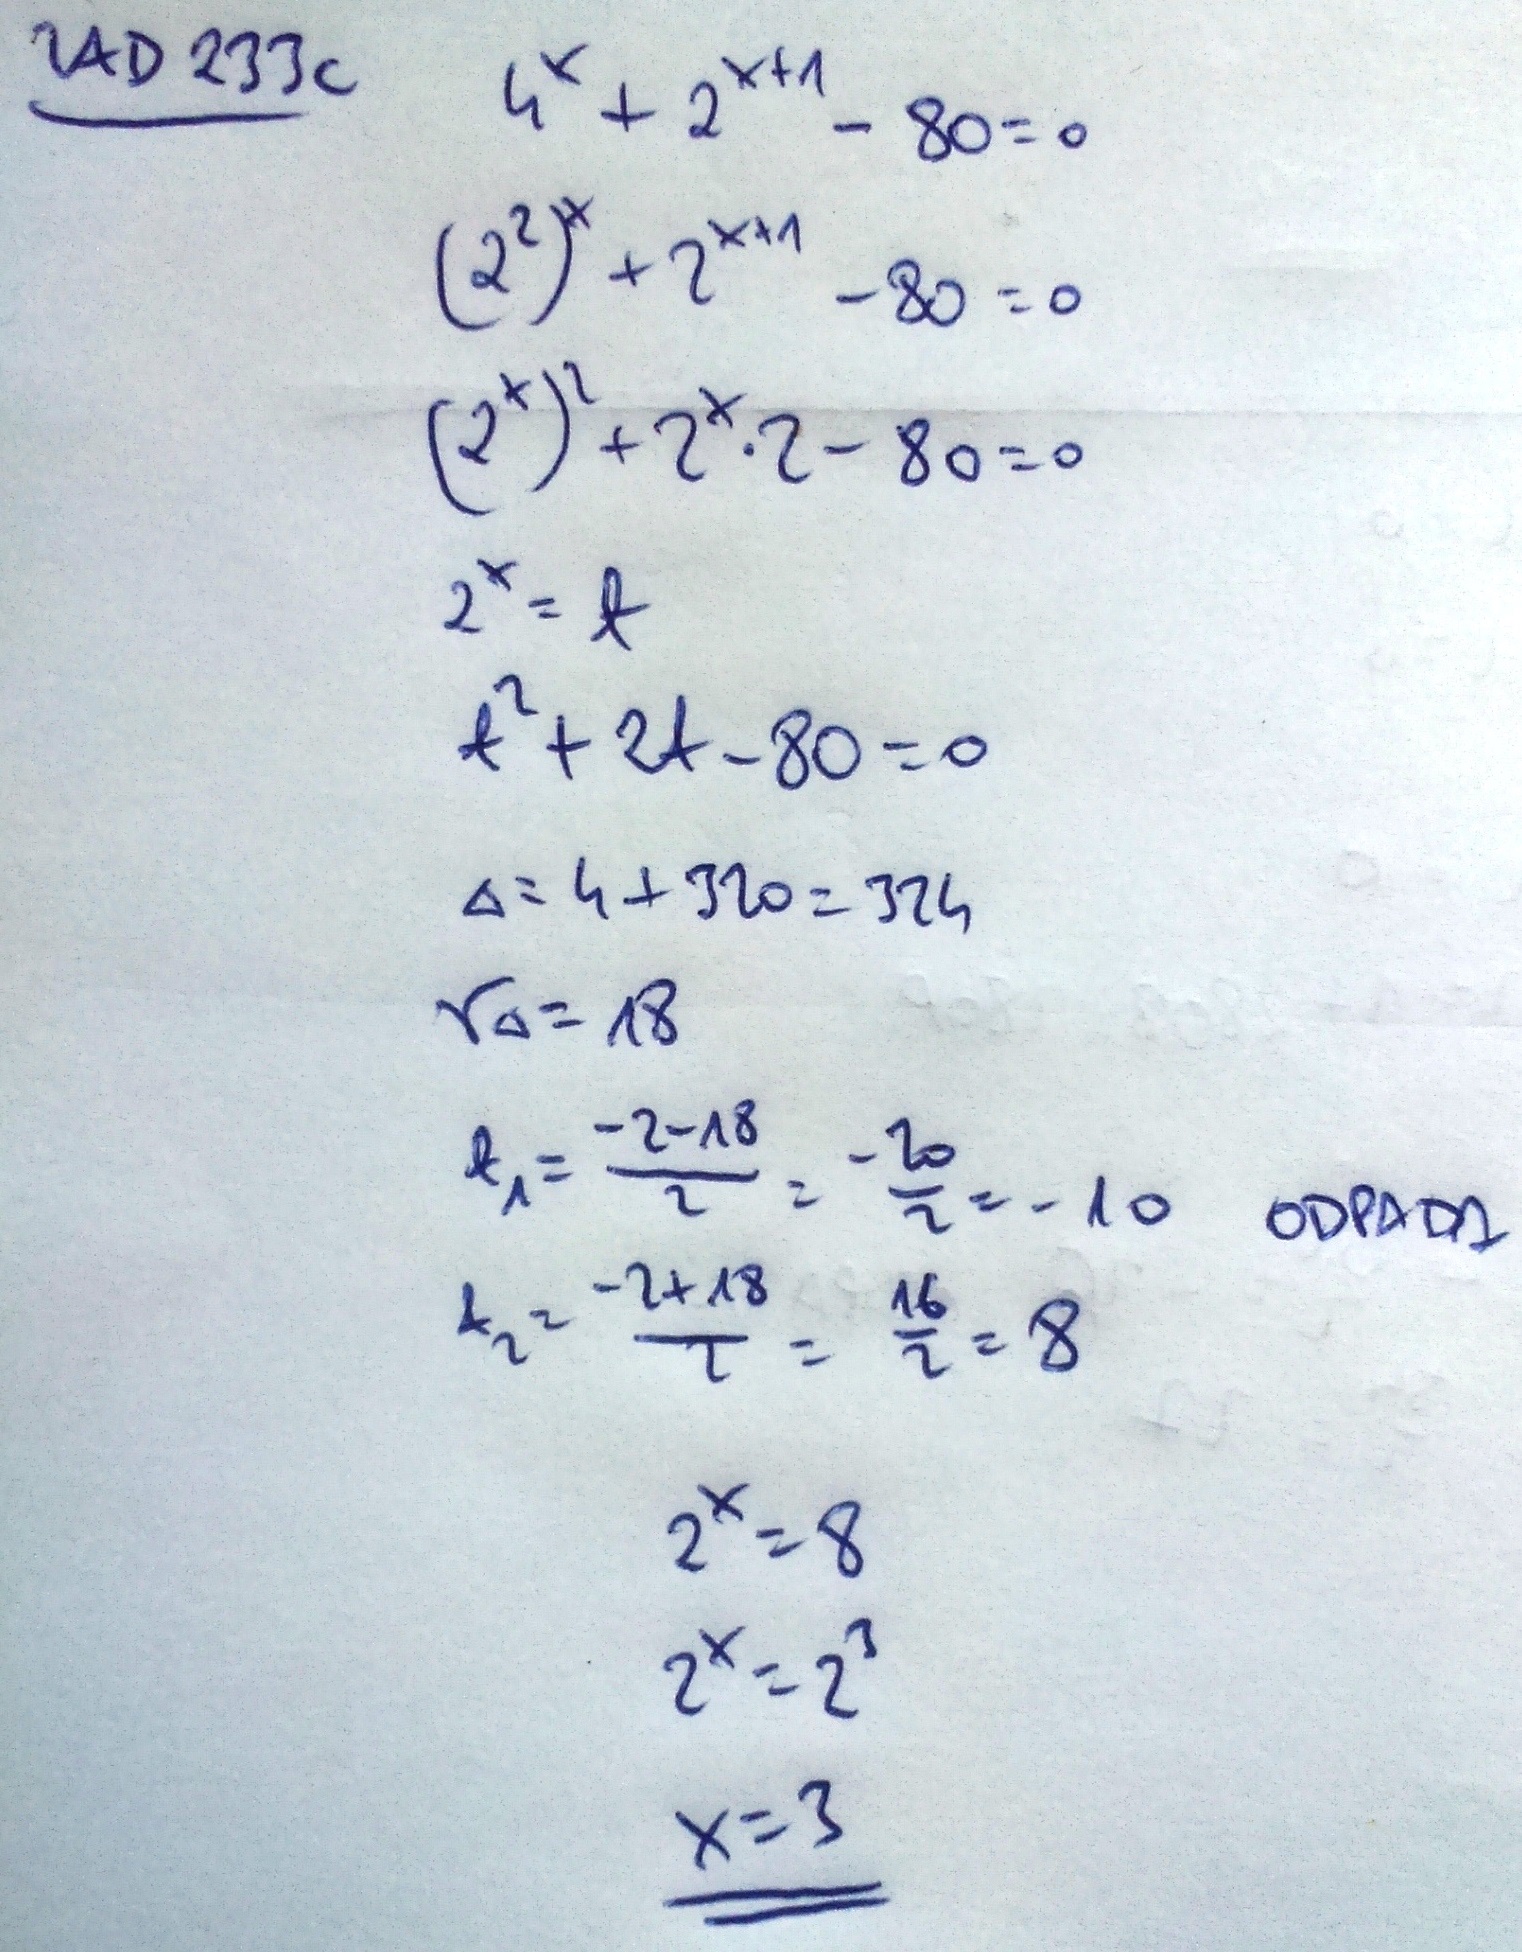 ZAD 233c
4^x + 2^(x+1) - 80 = 0
(2^2)^x + 2^(x+1) - 80 = 0
(2^x)^2 + 2^x · 2 - 80 = 0
2^x = t
t^2 + 2t - 80 = 0
Δ = 4 + 320 = 324
√Δ = 18
t₁ = (-2-18)/2 = -20/2 = -10 ODPADA
t₂ = (-2+18)/2 = 16/2 = 8
2^x = 8
2^x = 2^3
x = 3